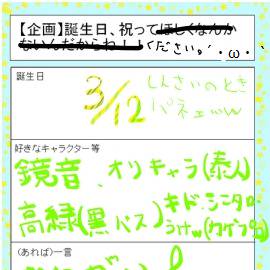 【企画】誕生日、祝ってほしくなんか
ないんだからね!!ください。・ω・
誕生日
3/12
しんさいのとき
パネェww
好きなキャラクター等
鏡音、オリキャラ(泰人)
高緑(黒バス)キド、シンタロー
うけw(カゲプロ)
(あれば)一言